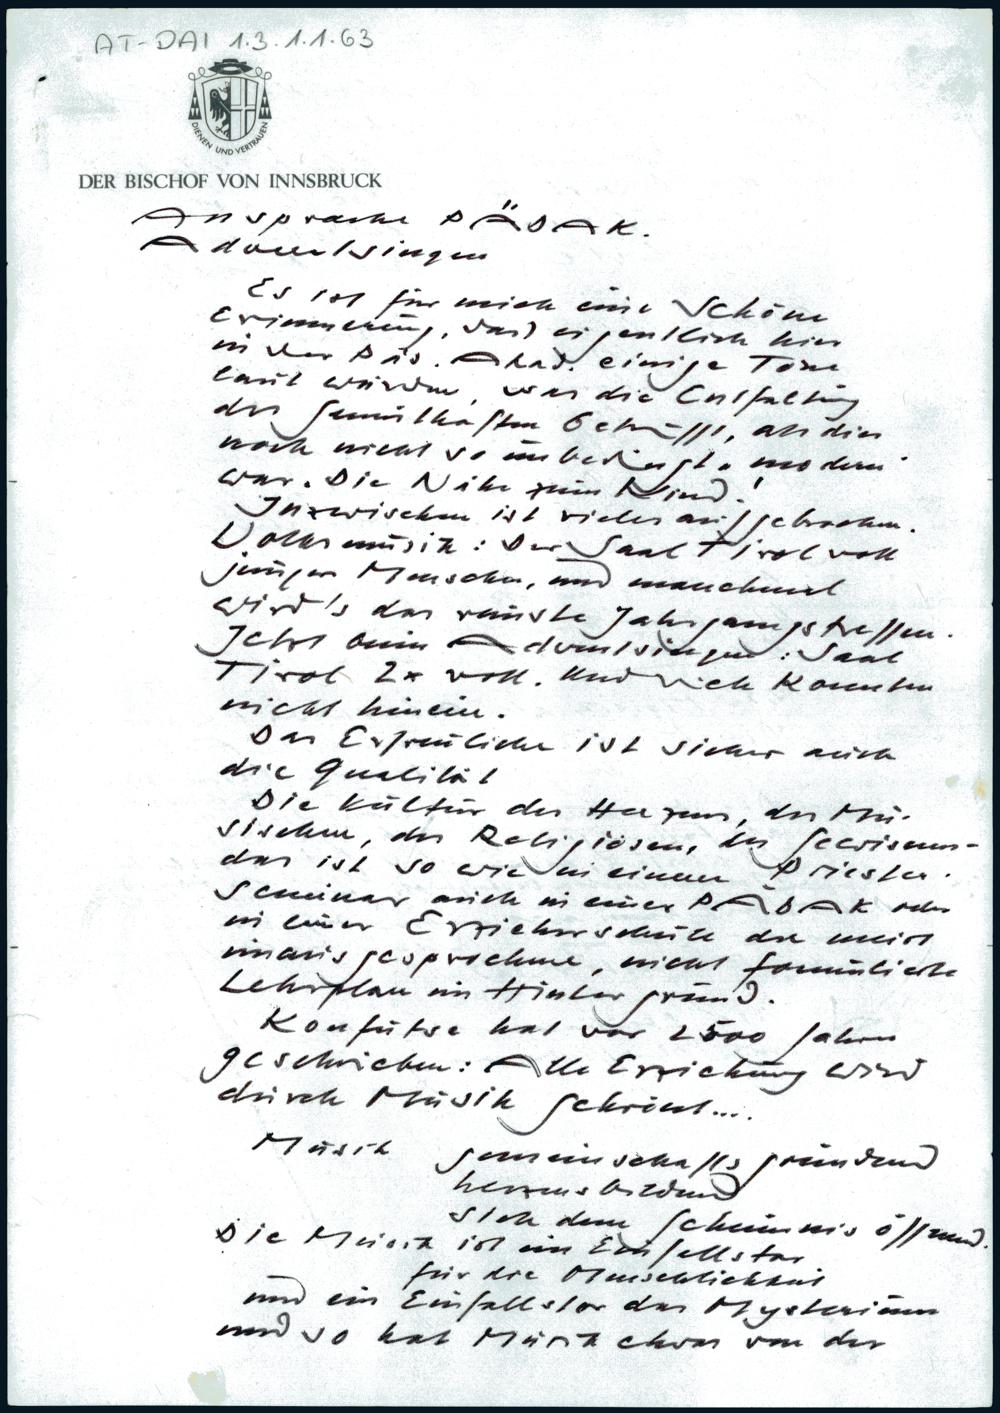 AT-DAI 1.3.1.1.63
DIENEN UND VERTRAUEN
DER BISCHOF VON INNSBRUCK
Ansprache PÄDAK.
Adventsingen
Es ist für mich eine schöne
Erinnerung, dass eigentlich hier
in der Päd. Akad. einige Töne
laut wurden, was die Entfaltung
des Gemüthaften betrifft, als dies
noch nicht so unbedingt modern
war. Die Nähe zum Kind!
Inzwischen ist vieles aufgebrochen.
Volksmusik: Der Saal Tirol voll
junger Menschen, und manchmal
wird's das reinste Jahrgangstreffen.
Jetzt beim Adventsingen: Saal
Tirol 2x voll. Und viele konnten
nicht hinein.
Das Erfreuliche ist sicher auch
die Qualität
Die Kultur des Herzens, des Mu-
sischen, des Religiösen, des Gewissens-
das ist so wie in einem Priester-
seminar auch in einer PÄDAK oder
in einer Erzieherschule der meist
unausgesprochene, nicht formulierte
Lehrplan im Hintergrund.
Konfutse hat vor 2500 Jahren
geschrieben: Alle Erziehung wird
durch Musik gekrönt....
Musik gemeinschaftsgründend
herzensbildend
sich dem Geheimnis öffnend.
Die Musik ist ein Einfallstor
für die Menschlichkeit
und ein Einfallstor des Mysteriums
und so hat Musik etwas von der